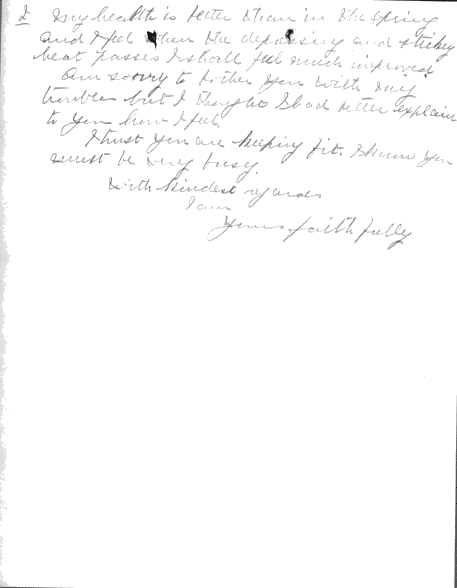 2 My health is better than in the spring
and I feel when the depressing and sticky
heat passes I shall feel much improved
Am sorry to bother you with my
troubles but I thought I had better explain
to you how I feel.
I trust you are keeping fit. I know you
must be very busy.
With kindest regards
I am
Yours faithfully